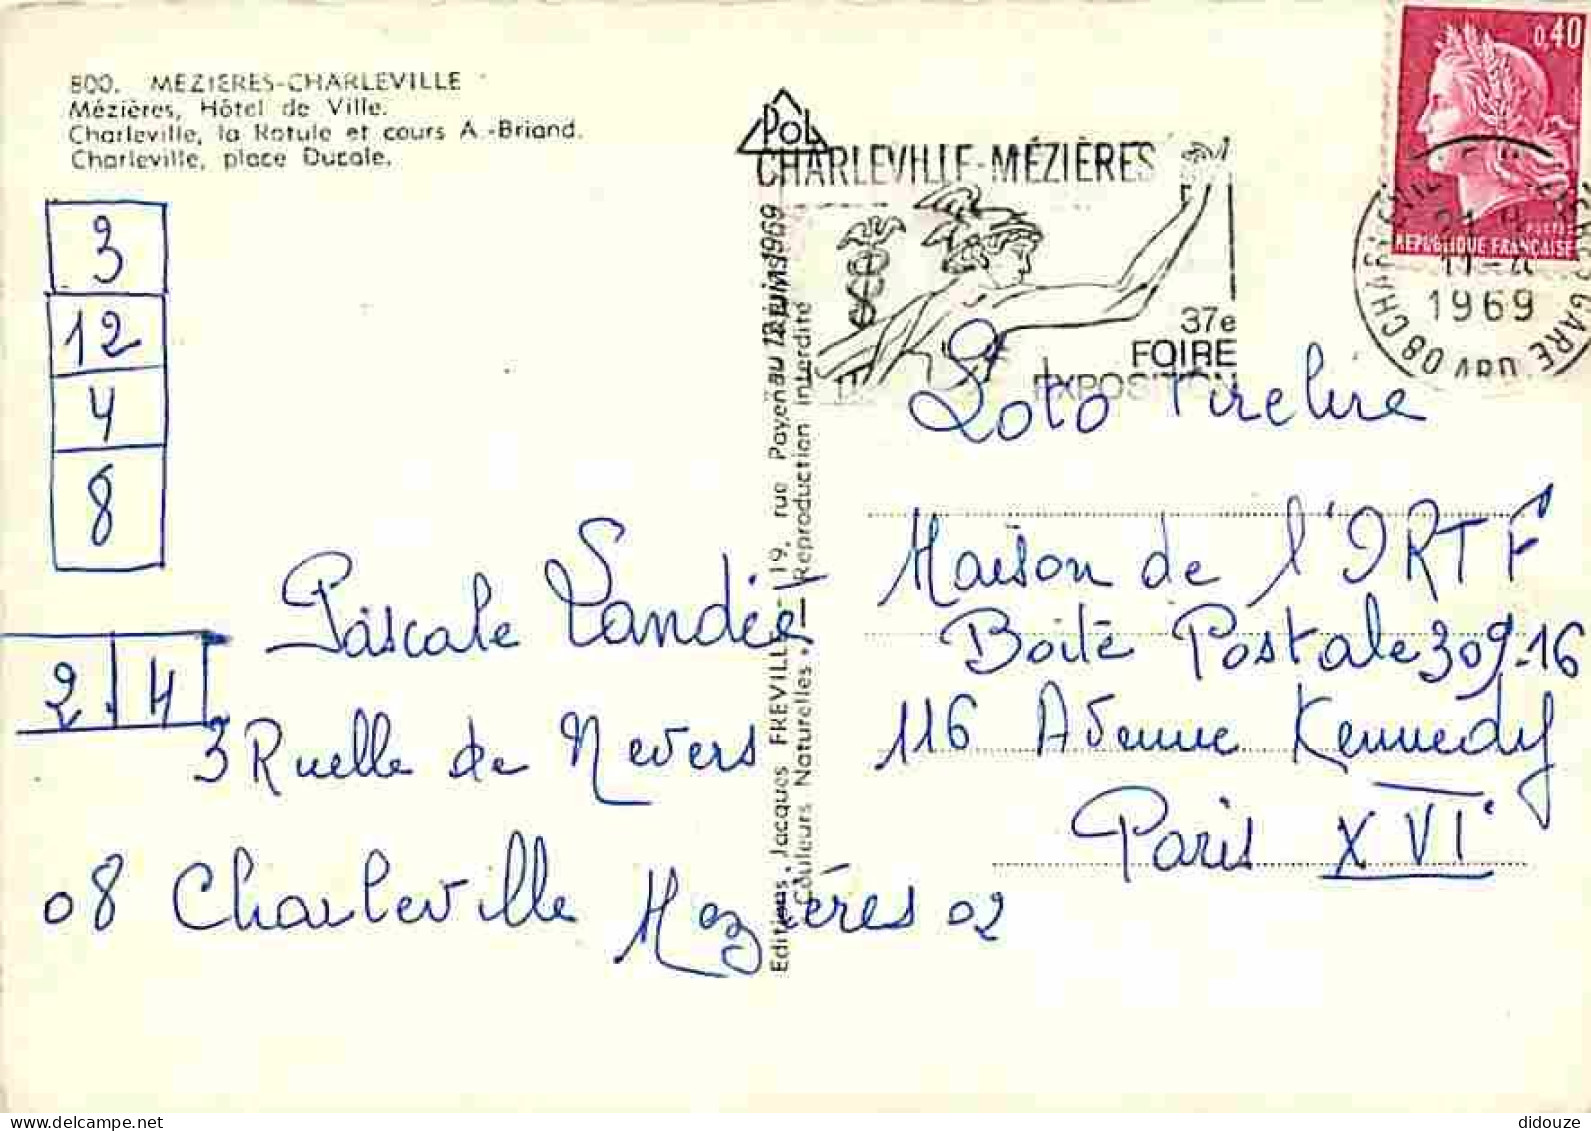 800. MÉZIÈRES-CHARLEVILLE
Mézières, Hôtel de Ville.
Charleville, la Rotule et cours A.-Briand.
Charleville, place Ducale.
3
12
4
8
2. 4
Pascale
3 Ruelle de Nevers
08 Charleville Mézières 02
Editions Jacques FREVILLE - 19, rue Payen au
Couleurs Naturelles — Reproduction interdite
Pol
CHARLEVILLE-MÉZIÈRES
1969
37e
FOIRE
EXPOSITION
0,40
POSTES
REPUBLIQUE FRANÇAISE
21 H
11-4
1969
08 CHARLEVILLE GARE
ARD.
Loto Tirelire
Maison de l'ORTF
Boite Postale 309-16
116 Avenue Kennedy
Paris XVI
www.delcampe.net
didouze